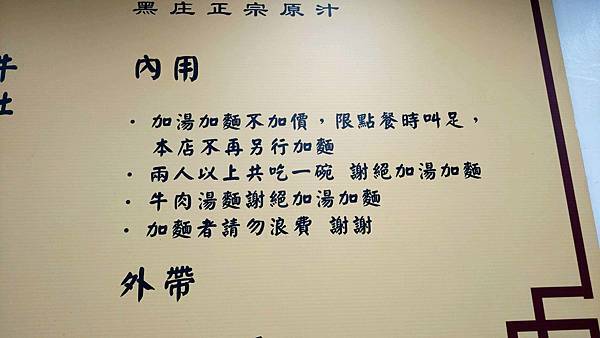 黑庄正宗原汁
內用
· 加湯加麵不加價，限點餐時叫足，
本店不再另行加麵
· 兩人以上共吃一碗 謝絕加湯加麵
· 牛肉湯麵謝絕加湯加麵
· 加麵者請勿浪費 謝謝
外帶